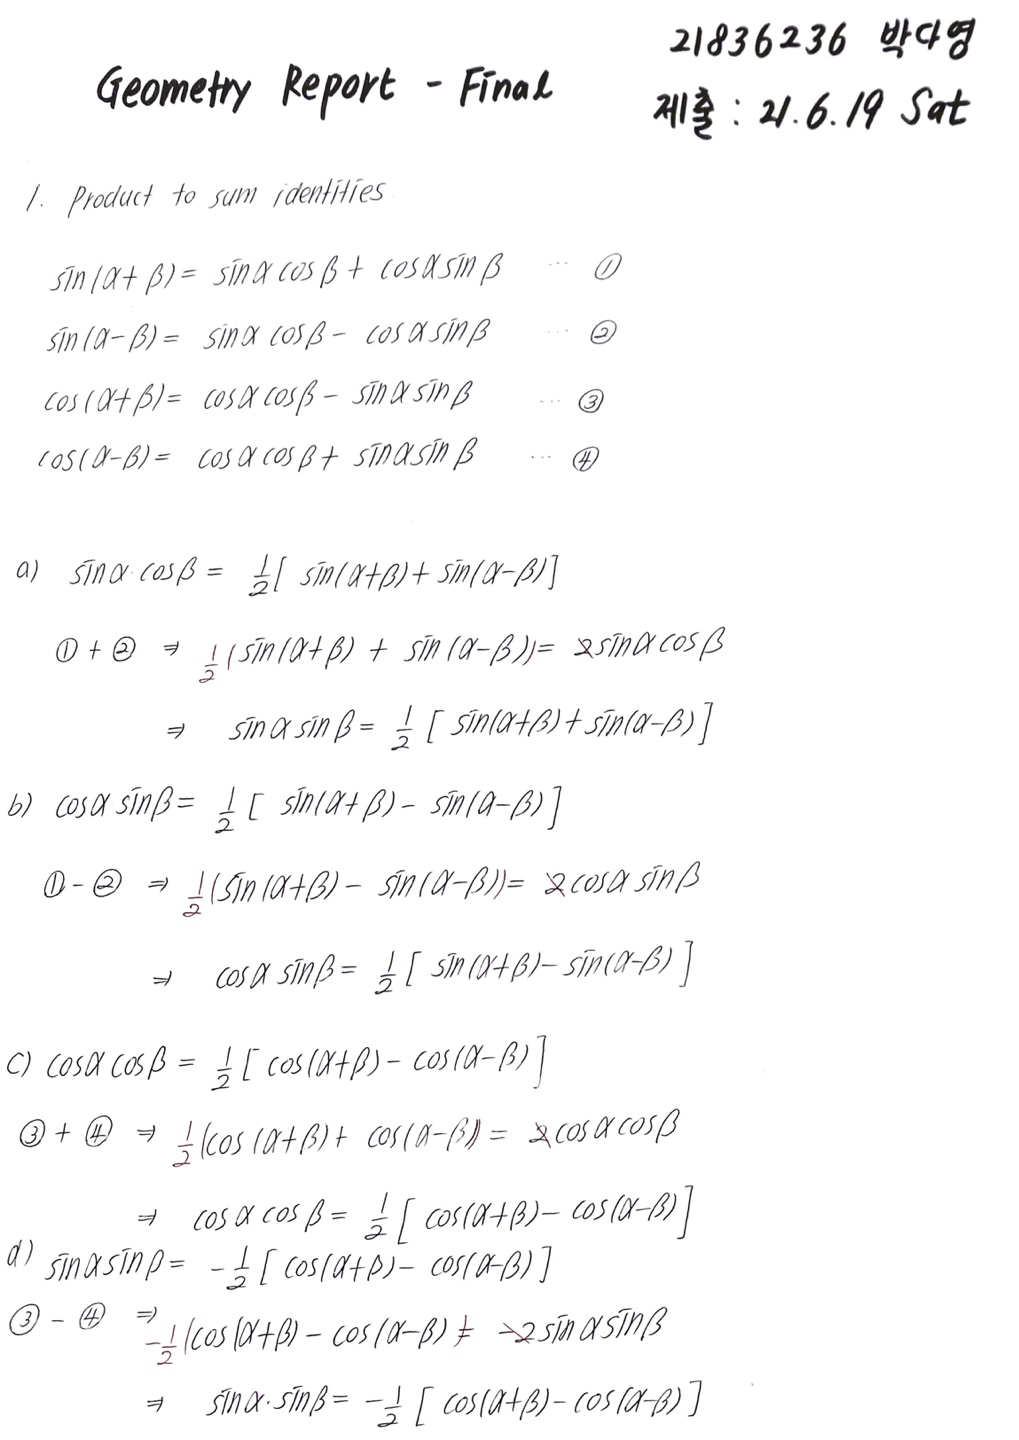 21836236 박다영
Geometry Report - Final
제출 : 21.6.19 Sat
1. Product to sum identities
sin(α+β)= sinα cosβ + cosα sinβ ... ①
sin(α-β)= sinα cosβ - cosα sinβ ... ②
cos(α+β)= cosα cosβ - sinα sinβ ... ③
cos(α-β)= cosα cosβ + sinα sinβ ... ④
a) sinα·cosβ = 1/2[ sin(α+β)+ sin(α-β)]
① + ② ⇒ 1/2(sin(α+β) + sin(α-β))= 2sinα cosβ
⇒ sinα sinβ = 1/2 [ sin(α+β)+sin(α-β)]
b) cosα sinβ = 1/2 [ sin(α+β) - sin(α-β)]
① - ② ⇒ 1/2(sin(α+β) - sin(α-β))= 2cosα sinβ
⇒ cosα sinβ = 1/2 [ sin(α+β)-sin(α-β) ]
c) cosα cosβ = 1/2 [ cos(α+β)- cos(α-β)]
③ + ④ ⇒ 1/2(cos(α+β)+ cos(α-β)) = 2cosα cosβ
⇒ cosα cosβ = 1/2 [ cos(α+β)- cos(α-β)]
d) sinα sinβ = -1/2 [ cos(α+β)- cos(α-β)]
③ - ④ ⇒ -1/2(cos(α+β) - cos(α-β) = -2sinα sinβ
⇒ sinα·sinβ = -1/2 [ cos(α+β)-cos(α-β)]